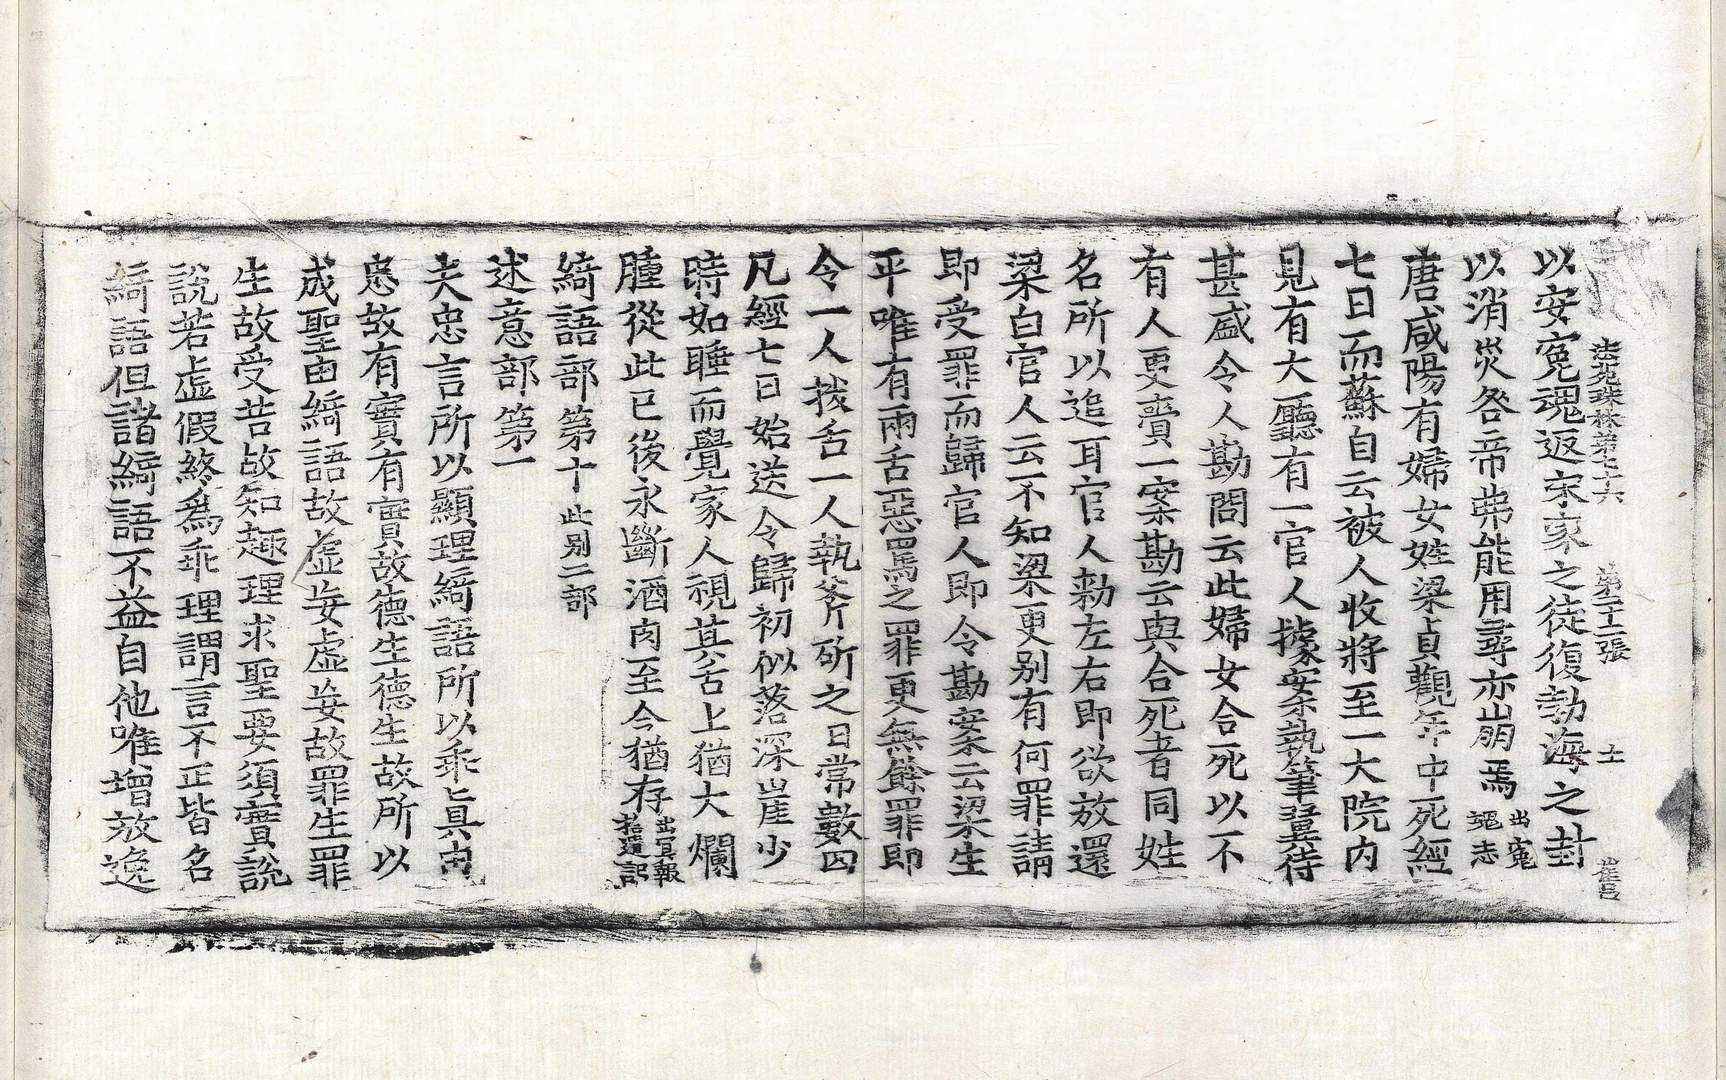 法苑珠林第七十六 第十二張 士 崔呂
以安寃魂返宋家之徒復勃海之封
以消災咎帝弗能用尋亦崩焉出寃魂志
唐咸陽有婦女姓梁貞觀年中死經
七日而蘇自云被人收將至一大院内
見有大廳有一官人據案執筆翼待
甚盛令人勘問云此婦女合死以不
有人更賫一案勘云與合死者同姓
名所以追耳官人勑左右即欲放還
梁白官人云不知梁更别有何罪請
即受罪而歸官人即令勘案云梁生
平唯有兩舌惡罵之罪更無餘罪即
令一人拔舌一人執斧斫之日常數四
凡經七日始送令歸初似落深崖少
時如睡而覺家人視其舌上猶大爛
腫從此已後永斷酒肉至今猶存出冥報拾遺記
綺語部第十此别二部
述意部第一
夫忠言所以顯理綺語所以乖真由
忠故有實有實故德生德生故所以
成聖由綺語故虛妄虛妄故罪生罪
生故受苦故知趣理求聖要須實說
說若虛假終爲乖理謂言不正皆名
綺語但諸綺語不益自他唯增放逸